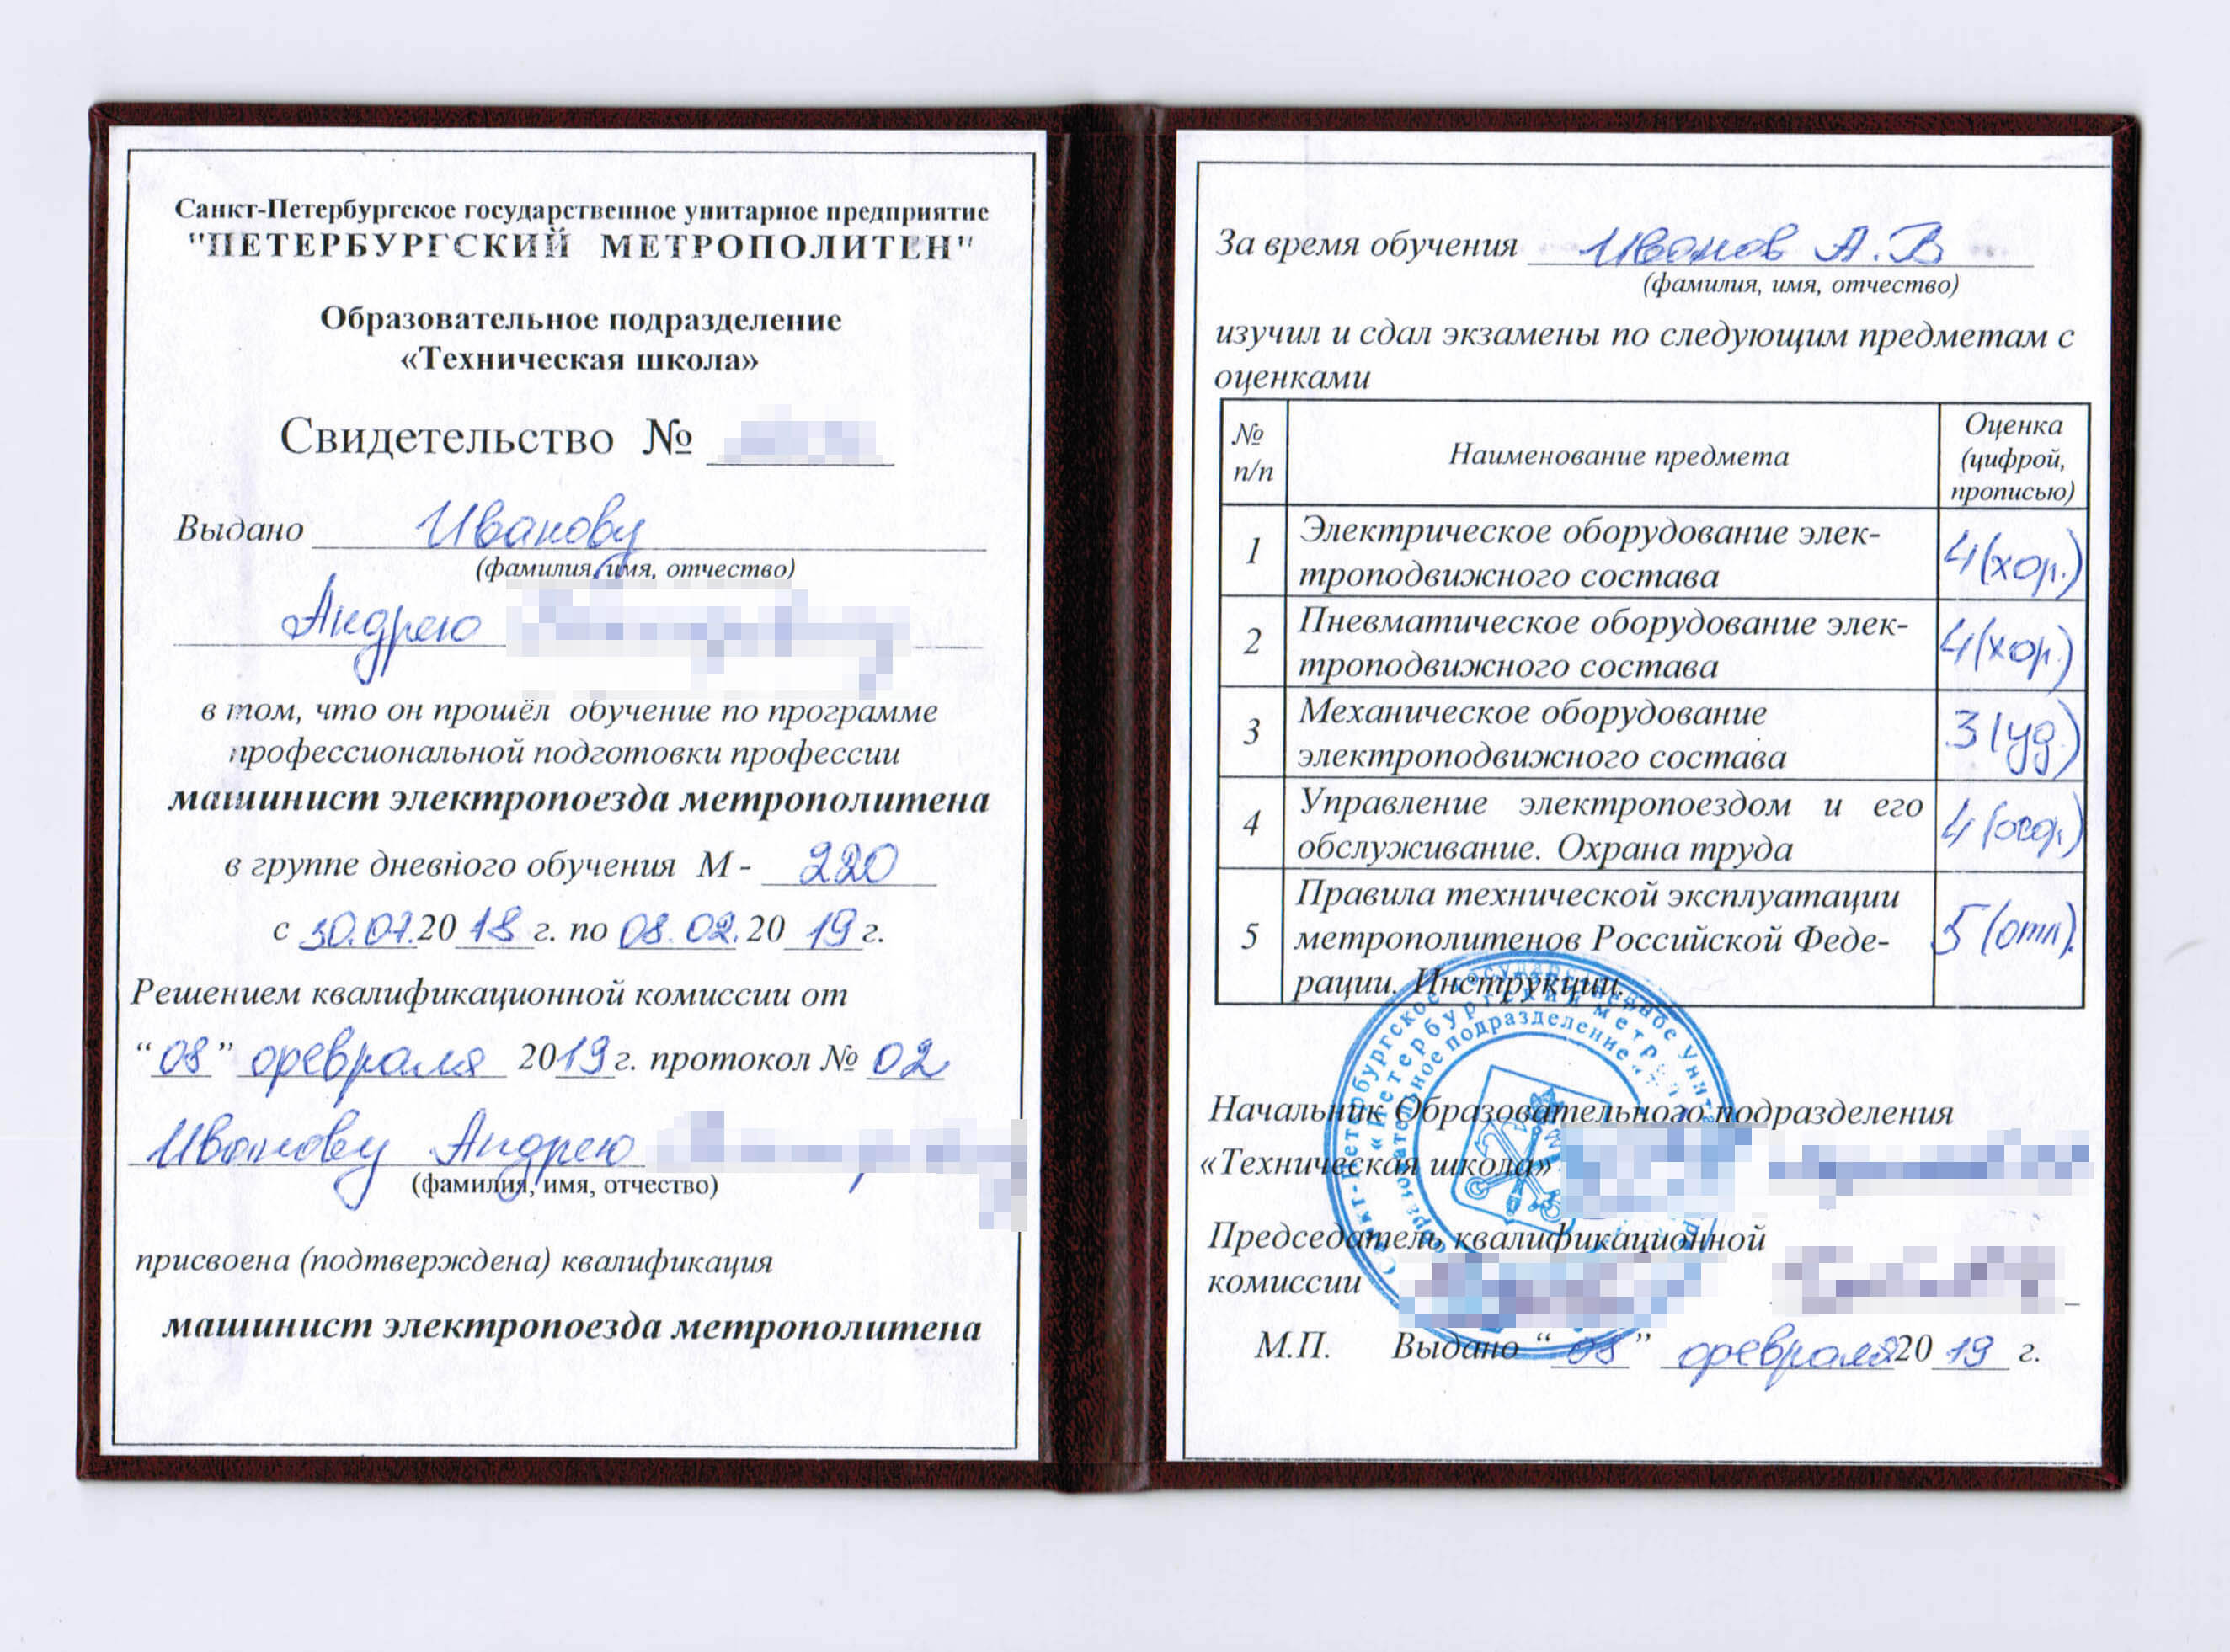 Санкт-Петербургское государственное унитарное предприятие
"ПЕТЕРБУРГСКИЙ МЕТРОПОЛИТЕН"
Образовательное подразделение
«Техническая школа»
Свидетельство №
Выдано Иванову
(фамилия, имя, отчество)
Андрею
в том, что он прошёл обучение по программе
профессиональной подготовки профессии
машинист электропоезда метрополитена
в группе дневного обучения М - 220
с 30.07.2018 г. по 08.02.2019 г.
Решением квалификационной комиссии от
“08” февраля 2019 г. протокол № 02
Иванову Андрею
(фамилия, имя, отчество)
присвоена (подтверждена) квалификация
машинист электропоезда метрополитена
За время обучения Иванов А.В
(фамилия, имя, отчество)
изучил и сдал экзамены по следующим предметам с
оценками
№ п/п Наименование предмета Оценка (цифрой, прописью)
1 Электрическое оборудование элек-
троподвижного состава 4 (хор.)
2 Пневматическое оборудование элек-
троподвижного состава 4 (хор.)
3 Механическое оборудование
электроподвижного состава 3 (уд.)
4 Управление электропоездом и его
обслуживание. Охрана труда 4 (хор)
5 Правила технической эксплуатации
метрополитенов Российской Феде-
рации. Инструкции. 5 (отл).
Начальник Образовательного подразделения
«Техническая школа»
Председатель квалификационной
комиссии
М.П. Выдано “08” февраля 2019 г.